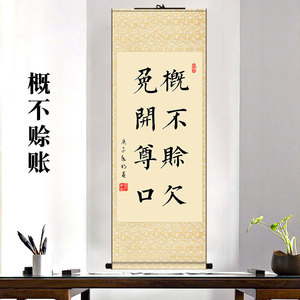 概不赊账
概不赊欠
免開尊口